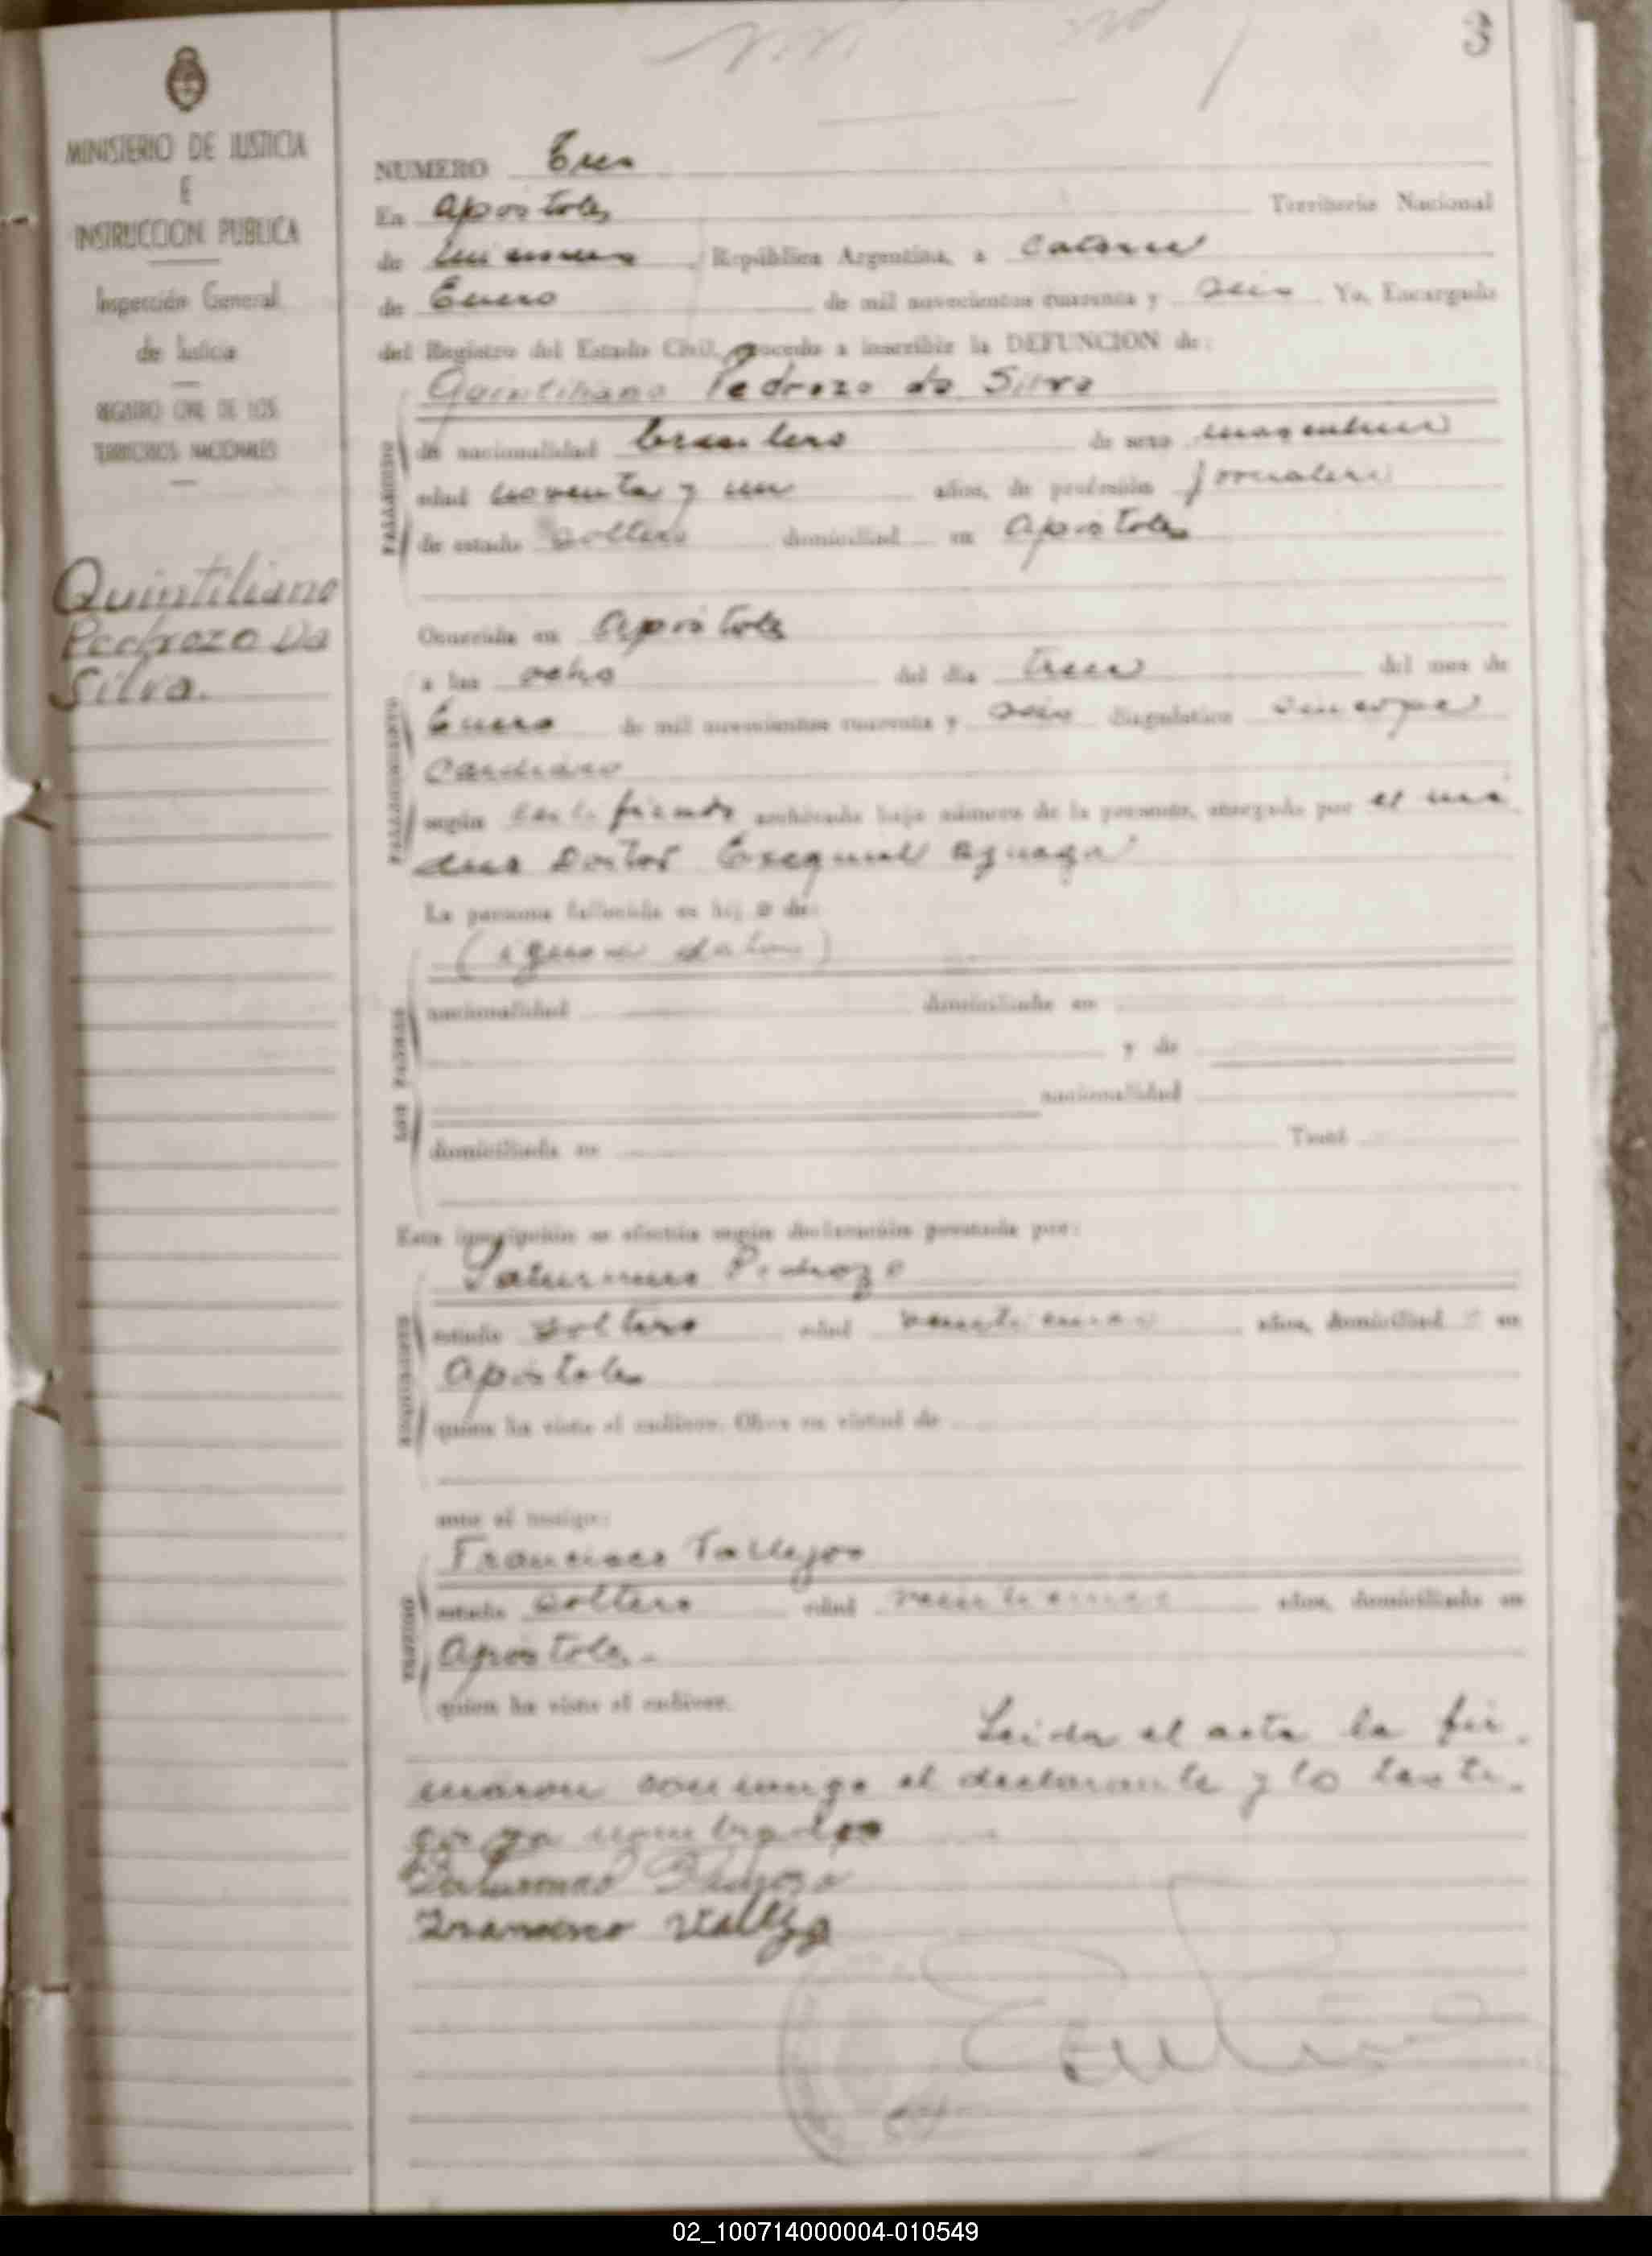 3
MINISTERIO DE JUSTICIA
E
INSTRUCCION PUBLICA
Inspección General
de Justicia
REGISTRO CIVIL DE LOS
TERRITORIOS NACIONALES
Quintiliano
Pedrozo Da
Silva.
NUMERO Tres
En Apostoles Territorio Nacional
de Misiones, República Argentina, a Catorce
de Enero de mil novecientos cuarenta y Seis Yo, Encargado
del Registro del Estado Civil, procedo a inscribir la DEFUNCION de:
Quintiliano Pedrozo da Silva
FALLECIDO
de nacionalidad brasilero de sexo masculino
edad noventa y un años, de profesión jornalero
de estado soltero domiciliad en Apostoles
FALLECIMIENTO
Ocurrida en Apostoles
a las ocho del día trece del mes de
Enero de mil novecientos cuarenta y seis diagnóstico sincope
Cardiaco
según certificado archivado bajo número de la presente, otorgado por el me
dico Doctor Exequiel
La persona fallecida es hij o de:
(ignora datos)
LOS PADRES
nacionalidad domiciliado en
y de
nacionalidad
domiciliada en Testó
Esta inscripción se efectúa según declaración prestada por:
Saturnino Pedrozo
estado soltero edad años, domiciliad o en
Apostoles
quien ha visto el cadáver. Obra en virtud de
ante el testigo:
Francisco Vallejos
TESTIGO
estado soltero edad años, domiciliado en
Apostoles.-
quien ha visto el cadáver.
Leida el acta la fir-
maron conmigo el declarante y lo testi-
gos ya nombrados
Saturnino Pedrozo
Francisco Vallejo
02_100714000004-010549